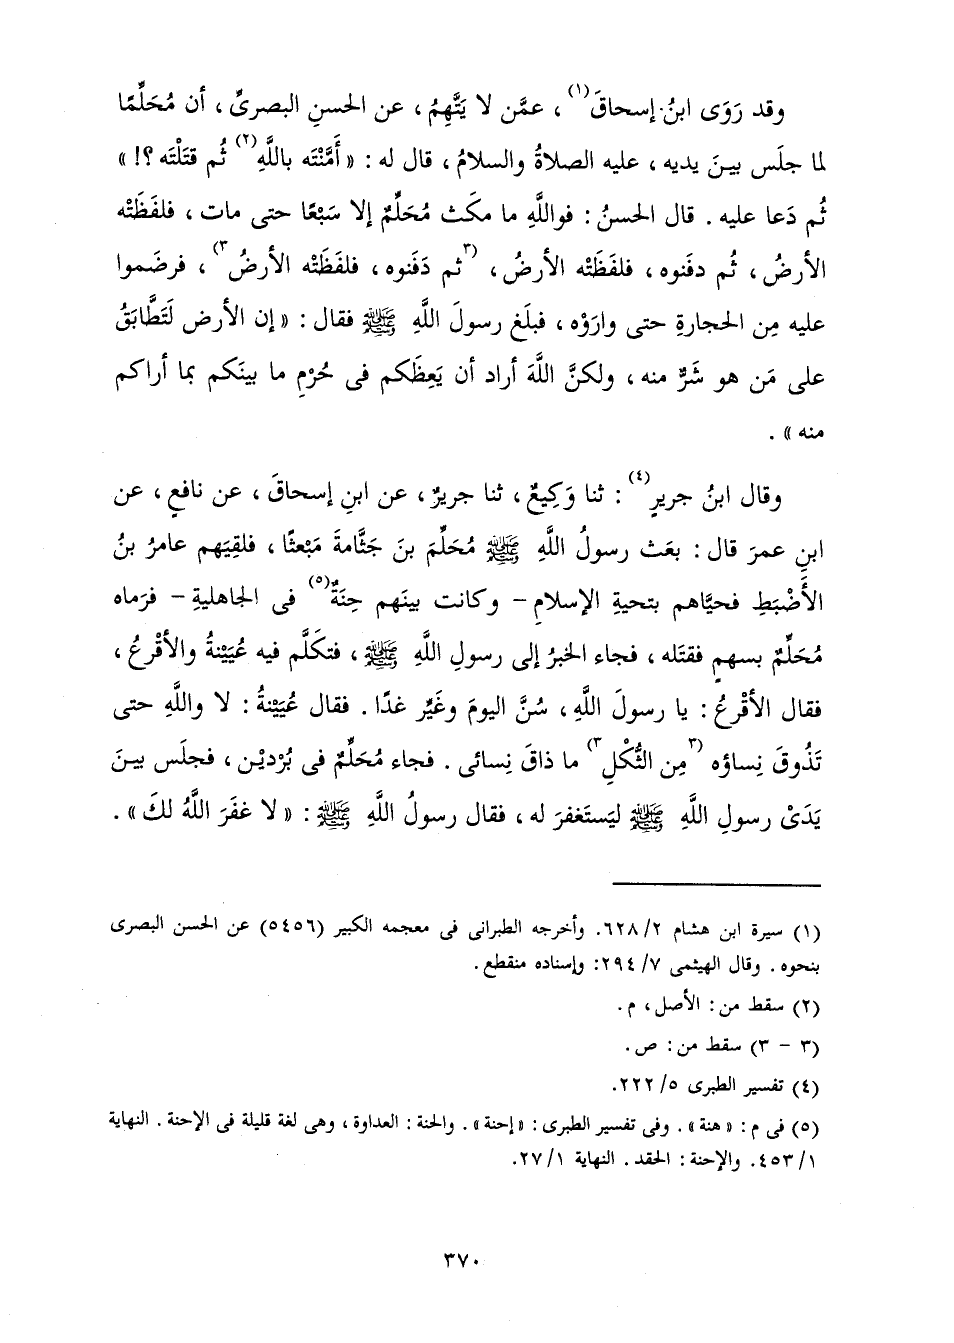 وقد رَوَى ابنُ إسحاقَ(١) ، عمَّن لا يَتَّهِمُ ، عن الحسنِ البصرىِّ ، أن مُحَلِّمًا
لما جلَس بينَ يديه ، عليه الصلاةُ والسلامُ ، قال له : « أَمَّنْتَه باللَّهِ(٢) ثُم قتَلْتَه ؟! »
ثُم دَعا عليه . قال الحسنُ : فواللَّهِ ما مكَث مُحَلِّمٌ إلا سَبْعًا حتى مات ، فلفَظَتْه
الأرضُ ، ثُم دفَنوه ، فلفَظَتْه الأرضُ ، (٣ثم دَفَنوه ، فلفَظَتْه الأرضُ٣) ، فرضَموا
عليه مِن الحجارةِ حتى وارَوْه ، فبلَغ رسولَ اللَّهِ ﷺ فقال : « إن الأرضَ لَتَطَّابَقُ
على مَن هو شَرٌّ منه ، ولكنَّ اللَّهَ أراد أن يَعِظَكم فى حُرْمِ ما بينَكم بما أراكم
منه » .
وقال ابنُ جريرٍ(٤) : ثنا وَكِيعٌ ، ثنا جريرٌ ، عن ابنِ إسحاقَ ، عن نافعٍ ، عن
ابنِ عمرَ قال : بعَث رسولُ اللَّهِ ﷺ مُحَلِّمَ بنَ جَثَّامةَ مَبْعثًا ، فلقِيَهم عامرُ بنُ
الأَضْبَطِ فحيَّاهم بتحيةِ الإسلامِ - وكانت بينَهم حِنَةٌ(٥) فى الجاهليةِ - فرَماه
مُحَلِّمٌ بسهمٍ فقتَله ، فجاء الخبرُ إلى رسولِ اللَّهِ ﷺ ، فتكَلَّم فيه عُيَيْنةُ والأقْرعُ ،
فقال الأقْرعُ : يا رسولَ اللَّهِ ، سُنَّ اليومَ وغَيِّر غدًا . فقال عُيَيْنةُ : لا واللَّهِ حتى
تَذُوقَ نِساؤه (٣مِن الثُّكْلِ٣) ما ذاقَ نِسائى . فجاء مُحَلِّمٌ فى بُرْديْن ، فجلَس بينَ
يَدَىْ رسولِ اللَّهِ ﷺ ليَستَغفرَ له ، فقال رسولُ اللَّهِ ﷺ : « لا غفَرَ اللَّهُ لكَ » .
(١) سيرة ابن هشام ٢/ ٦٢٨. وأخرجه الطبرانى فى معجمه الكبير (٥٤٥٦) عن الحسن البصرى
بنحوه . وقال الهيثمى ٧/ ٢٩٤: وإسناده منقطع .
(٢) سقط من : الأصل ، م .
(٣ - ٣) سقط من : ص .
(٤) تفسير الطبرى ٥/ ٢٢٢.
(٥) فى م : « هنة » . وفى تفسير الطبرى : « إحنة » . والحنة : العداوة ، وهى لغة قليلة فى الإحنة . النهاية
١/ ٤٥٣. والإحنة : الحقد . النهاية ١/ ٢٧.
٣٧٠